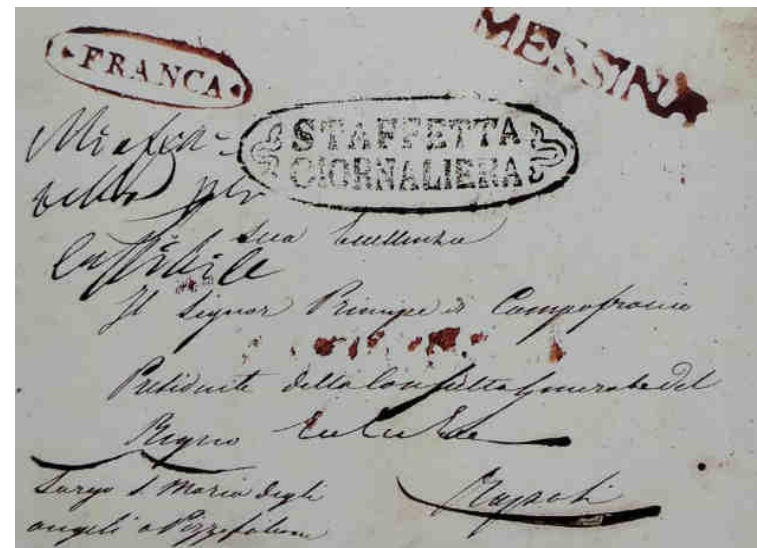 FRANCA
MESSINA
STAFFETTA
GIORNALIERA
per
Sua Eccellenza
Il Signor Principe di Campofranco
Presidente della Consulta Generale del
Regno
Largo S. Maria degli
angeli a Pizzofalcone
Napoli